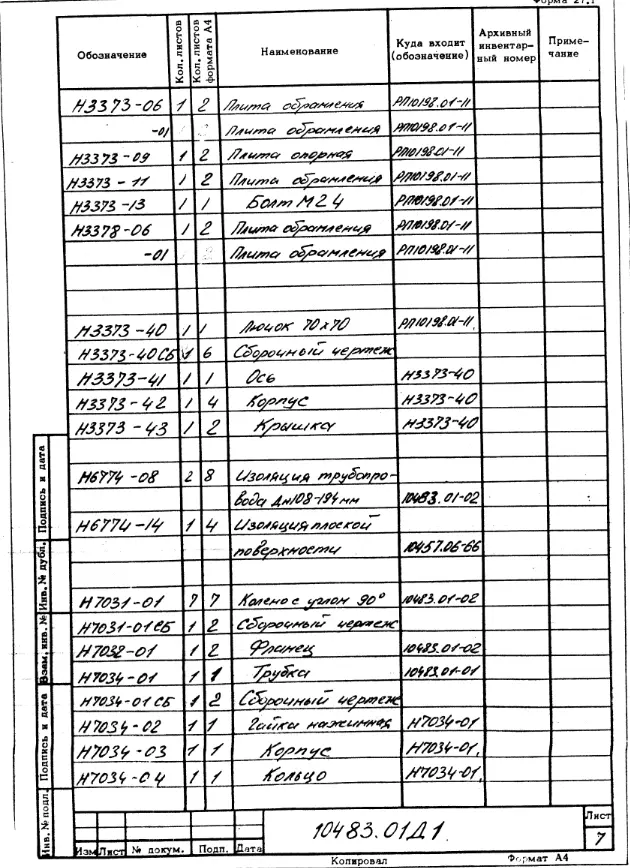 Форма 27.1
Обозначение Кол. листов Кол. листов формата А4 Наименование Куда входит (обозначение) Архивный инвентарный номер Примечание
Н3373-06 1 2 Плита обрамления РП10198.01-11
-01 Плита обрамления РП10198.01-11
Н3373-09 1 2 Плита опорная РП10198.01-11
Н3373-11 1 2 Плита обрамления РП10198.01-11
Н3373-13 1 1 Болт М24 РП10198.01-11
Н3378-06 1 2 Плита обрамления РП10198.01-11
-01 Плита обрамления РП10198.01-11
Н3373-40 1 1 Лючок 70х70 РП10198.01-11
Н3373-40СБ 1 6 Сборочный чертеж
Н3373-41 1 1 Ось Н3373-40
Н3373-42 1 4 Корпус Н3373-40
Н3373-43 1 2 Крышка Н3373-40
Н6774-08 2 8 Изоляция трубопро-
вода Дн108-194мм 10483.01-02
Н6774-14 1 4 Изоляция плоской
поверхности 10457.06-66
Н7031-01 7 7 Колено с углом 90° 10483.01-02
Н7031-01СБ 1 2 Сборочный чертеж
Н7032-01 1 2 Фланец 10483.01-02
Н7034-01 1 1 Трубка 10483.01-01
Н7034-01СБ 1 2 Сборочный чертеж
Н7034-02 1 1 Гайка нажимная Н7034-01
Н7034-03 1 1 Корпус Н7034-01
Н7034-04 1 1 Кольцо Н7034-01
Инв. № подл. Подпись и дата Взам. инв. № Инв. № дубл. Подпись и дата
Изм Лист № докум. Подп. Дата
10483.01Д1
Лист
7
Копировал Формат А4